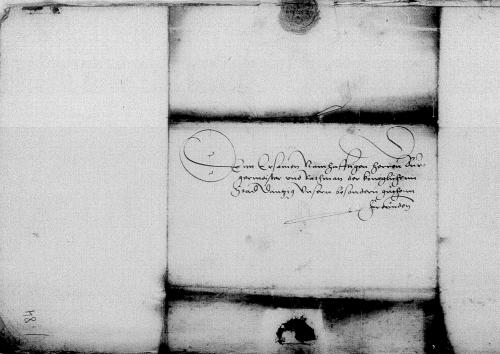 Denn Ersamen Namhafftigen Herren Bur-
germeister und Rathman der koniglichenn
Stad Dantzig Unsern besondern gutthenn
Freunden
184